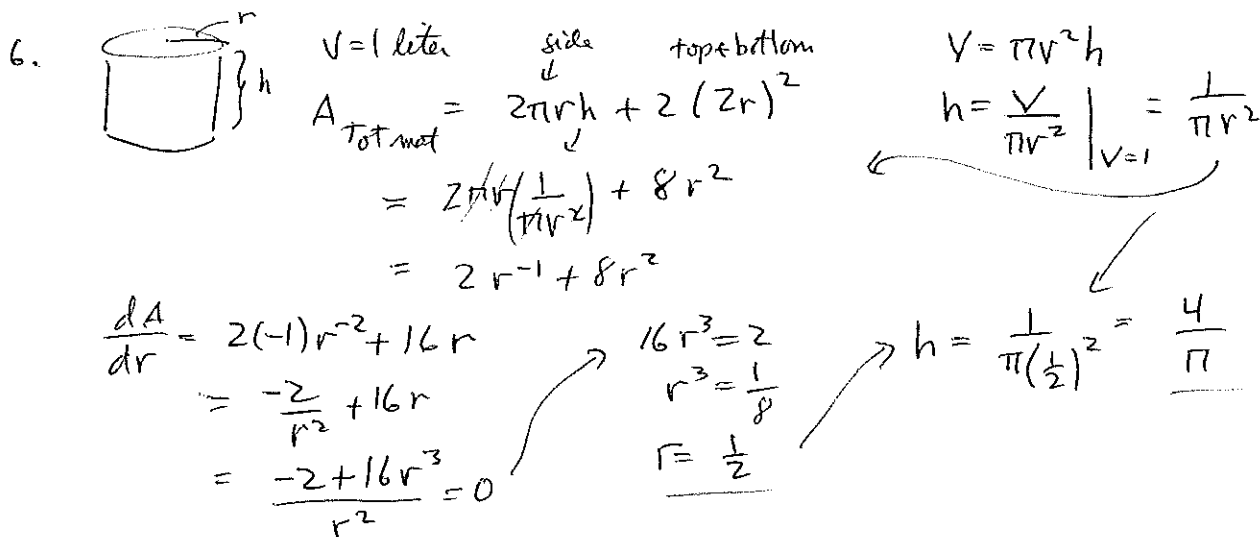 6.
r
h
V = 1 liter side top & bottom
A Tot mat = 2πrh + 2 (2r)²
= 2πr(1/πr²) + 8r²
= 2r⁻¹ + 8r²
V = πr²h
h = V/πr² |V=1 = 1/πr²
dA/dr = 2(-1)r⁻² + 16r
= -2/r² + 16r
= (-2 + 16r³)/r² = 0
16r³ = 2
r³ = 1/8
r = 1/2
h = 1/π(1/2)² = 4/π